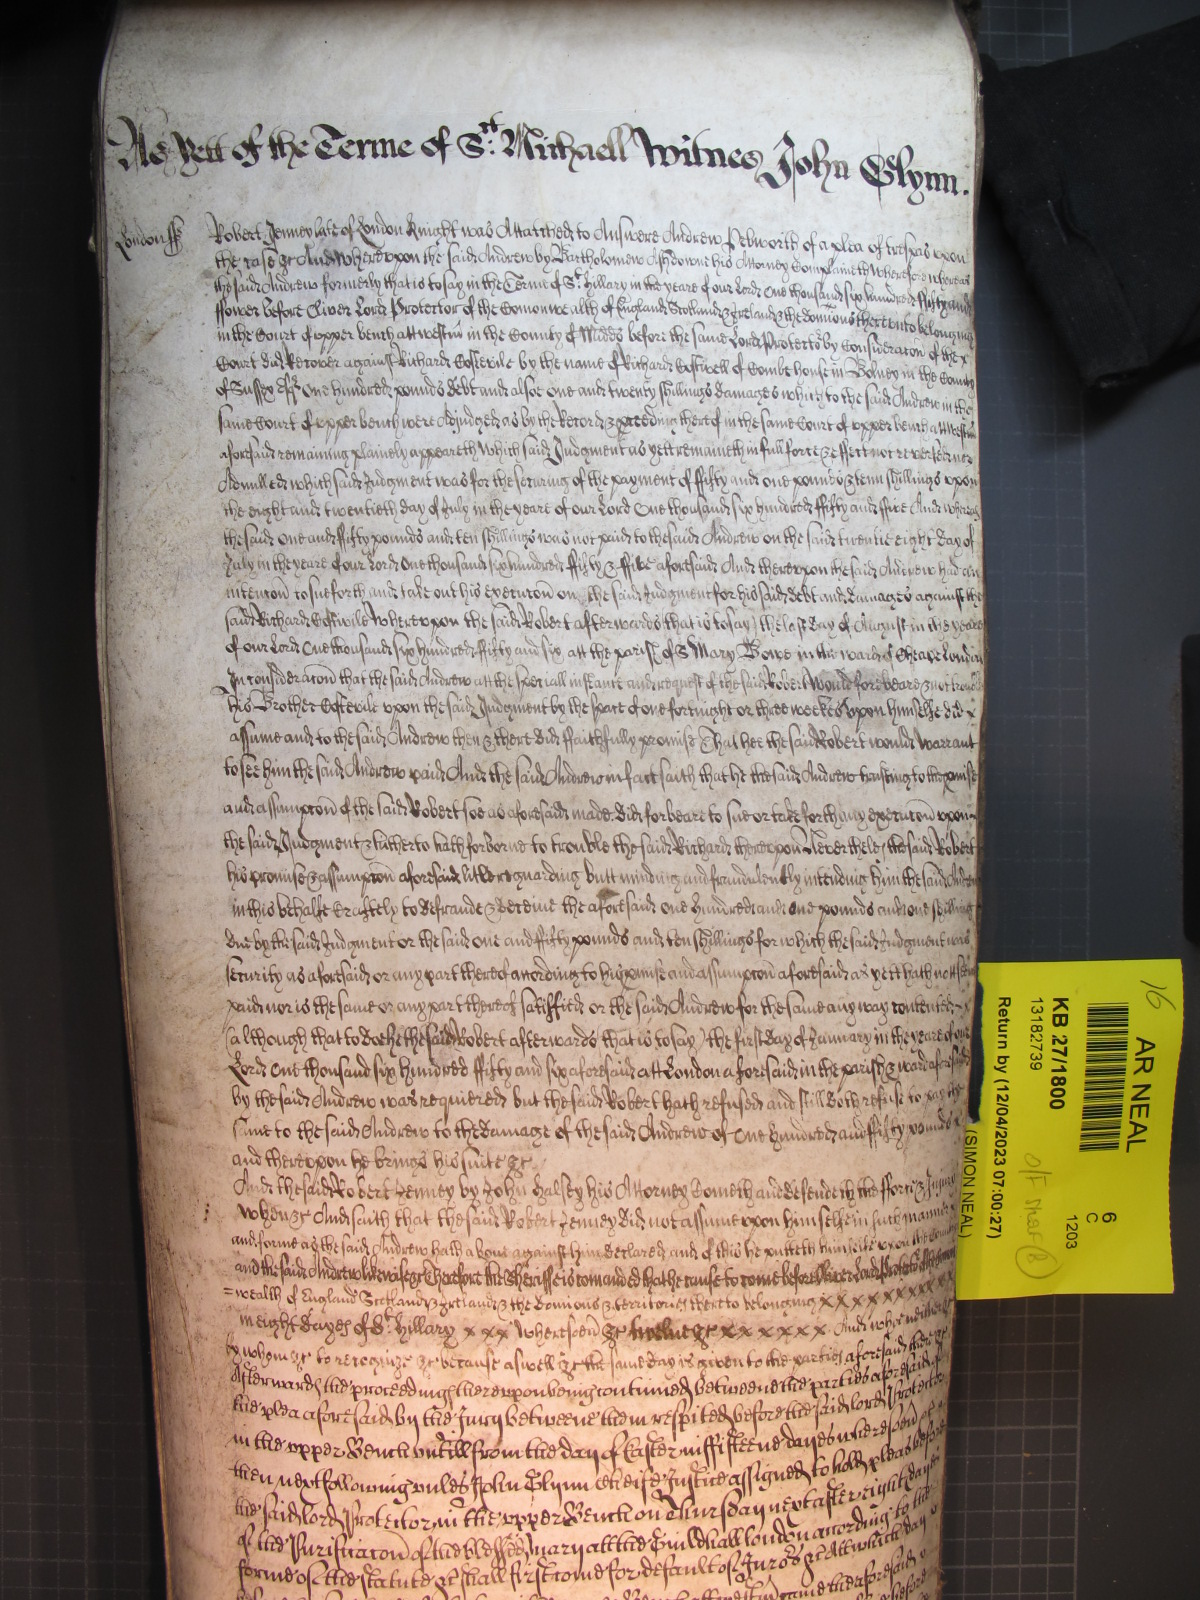 As yett of the Terme of St. Michaell Witnes John Glynn.
London ss
Robert Jenney late of London Knight was Attatched to Answere Andrew Pebworth of a plea of trespas upon
the case &c And whereupon the said Andrew by Bartholomew Ashdowne his Attorney Complaineth Wherefore whereas
the said Andrew formerly that is to say in the Terme of St. Hillary in the yeare of our Lord One thousand six hundred fifty and
ffower before Oliver Lord Protector of the Comonwealth of England Scotland & Ireland & the dominions thereunto belonging
in the Court of upper bench att westm in the County of Midds before the same Lord Protector by Consideracon of the x
Court did Recover against Richard Costevile by the name of Richard Costivell of Combe house in Bolney in the County
of Sussex One hundred pounds debt and alsoe one and twenty shillings damages which to the said Andrew in the
same Court of upper bench were Adjudged as by the Record & proceeding thereof in the same Court of upper bench att Westm
aforesaid remaining plainely appeareth Which said Judgment as yett remaineth in full force & effect not reversed nor
Adnulled which said Judgment was for the securing of the payment of ffifty and one pounds & tenn shillings upon
the eight and twentieth day of July in the yeare of our Lord One thousand six hundred ffifty and ffive And whereas
the said one and ffifty pounds and ten shillings was not paid to the said Andrew on the said twentie eight day of
July in the yeare of our Lord One thousand six hundred ffifty & ffive aforesaid And thereupon the said Andrew had an
intencon to sue forth and take out his execucon on the said Judgment for his said debt and damages against the
said Richard Costivile Whereupon the said Robert afterwards that is to say the last day of August in the yeare
of our Lord One thousand six hundred ffifty and six att the parish of St Mary Bowe in the ward of Cheape London
In consideracon that the said Andrew att the speciall instance and request of the said Robert Would forebeare & not trouble
his Brother Costevile upon the said Judgment by the space of one fortnight or three weekes upon himselfe did x
assume and to the said Andrew then & there did ffaithfully promise That hee the said Robert would Warrant
to see him the said Andrew paid And the said Andrew in fact saith that he the said Andrew trusting to the promise
and assumpcon of the said Robert soe as aforesaid made did forbeare to sue or take forth any execucon upon
the said Judgment & hitherto hath forborne to trouble the said Richard thereupon Neverthelesse the said Robert
his promise & assumpcon aforesaid little reguarding butt minding and fraudulently intending him the said Andrew
in this behalfe craftely to defraude & deceive the aforesaid one hundred and one pounds and one shilling
due by the said Judgment or the said one and ffifty pounds and ten shillings for which the said Judgment was
security as aforesaid or any part thereof according to his promise and assumpcon aforesaid as yett hath not
paid nor is the same or any part thereof satisffied or the said Andrew for the same any way contented x
(although that to doe he the said Robert afterwards that is to say the first day of January in the yeare of our
Lord One thousand six hundred ffifty and six aforesaid att London aforesaid in the parish & ward aforesaid
by the said Andrew was requiered but the said Robert hath refused and still doth refuse to pay the
same to the said Andrew to the damage of the said Andrew of One hundred and ffifty pounds x
and thereupon he brings his suite &c
And the said Robert Jenney by John Halsey his Attorney Cometh and defendeth the fforce & Injury
when &c And saith that the said Robert Jenney did not assume upon himselfe in such manner
and forme as the said Andrew hath above against him declared and of this he putteth himselfe upon the Country
and the said Andrew likewise &c Therefore the Sheriffe is comanded that he cause to come before Oliver Lord Protector of the Comon
=wealth of England Scotland & Ireland & the dominions & territories thereto belonging x x x x x x x x x x
in eight dayes of St. Hillary x x x wheresoev &c twelve &c x x x x x x And who neither &c
by whom &c to recognize &c because aswell &c the same day is given to the parties aforesaid there &c
Afterwards the proceedings thereupon being continued betweene the parties aforesaid of
the plea aforesaid by the Jury betweene them respited before the said lord Protector
in the upper Bench untill from the day of Easter in fifteene dayes wheresoev &c
then next following unles John Glynn Cheife Justice assigned to hold pleas before
the said lord Protector in the upper Bench on Thursday next after eight dayes
of the Purificacon of the blessed Mary att the Guildhall london according to the
forme of the statute &c shall first come for default of Jurors &c Att which day
16
AR NEAL
6
C
1203
KB 27/1800
13182739
Return by (12/04/2023 07:00:27)
(SIMON NEAL)